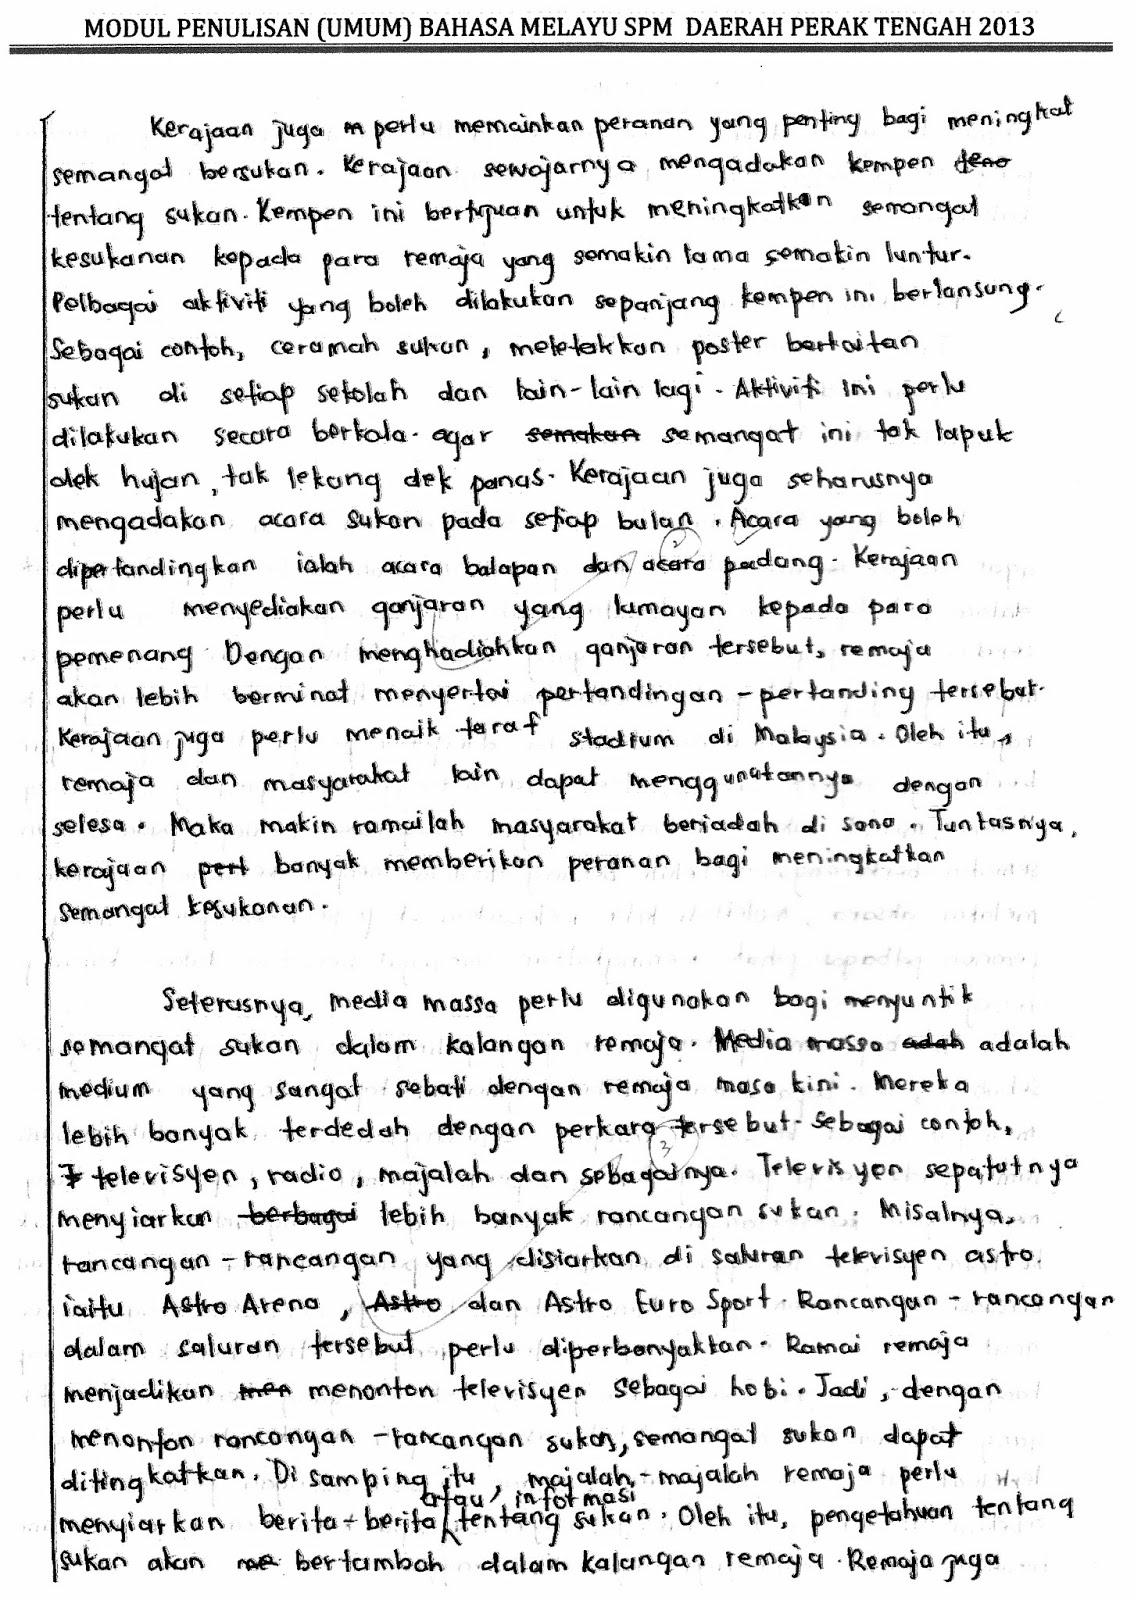 MODUL PENULISAN (UMUM) BAHASA MELAYU SPM DAERAH PERAK TENGAH 2013
Kerajaan juga m perlu memainkan peranan yang penting bagi meningkat
semangat bersukan. Kerajaan sewajarnya mengadakan kempen
tentang sukan. Kempen ini bertujuan untuk meningkatkan semangat
kesukanan kepada para remaja yang semakin lama semakin luntur.
Pelbagai aktiviti yang boleh dilakukan sepanjang kempen ini berlansung.
Sebagai contoh, ceramah sukan, meletakkan poster berkaitan
sukan di setiap sekolah dan lain-lain lagi. Aktiviti ini perlu
dilakukan secara berkala. agar semakan semangat ini tak lapuk
dek hujan, tak lekang dek panas. Kerajaan juga seharusnya
mengadakan acara sukan pada setiap bulan. Acara yang boleh
dipertandingkan ialah acara balapan dan acara padang. Kerajaan
perlu menyediakan ganjaran yang lumayan kepada para
pemenang. Dengan menghadiahkan ganjaran tersebut, remaja
akan lebih berminat menyertai pertandingan-pertanding tersebut.
Kerajaan juga perlu menaik taraf stadium di Malaysia. Oleh itu,
remaja dan masyarakat lain dapat menggunakannya dengan
selesa. Maka makin ramailah masyarakat beriadah di sana. Tuntasnya,
kerajaan perl banyak memberikan peranan bagi meningkatkan
semangat kesukanan.
Seterusnya, media massa perlu digunakan bagi menyuntik
semangat sukan dalam kalangan remaja. Media massa adah adalah
medium yang sangat sebati dengan remaja masa kini. Mereka
lebih banyak terdedah dengan perkara tersebut. Sebagai contoh,
televisyen, radio, majalah dan sebagainya. Televisyen sepatutnya
menyiarkan berbagai lebih banyak rancangan sukan. Misalnya,
rancangan-rancangan yang disiarkan di saluran televisyen astro
iaitu Astro Arena, Astro dan Astro Euro Sport. Rancangan-rancangan
dalam saluran tersebut perlu diperbanyakkan. Ramai remaja
menjadikan men menonton televisyen sebagai hobi. Jadi, dengan
menonton rancangan-rancangan sukan, semangat sukan dapat
ditingkatkan. Di samping itu, majalah-majalah remaja perlu
atau informasi
menyiarkan berita-berita tentang sukan. Oleh itu, pengetahuan tentang
sukan akan me bertambah dalam kalangan remaja. Remaja juga